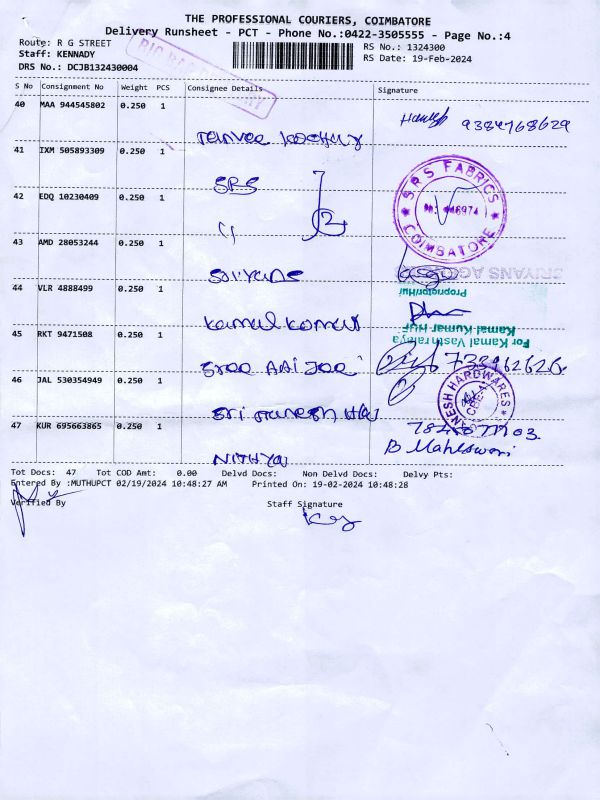 THE PROFESSIONAL COURIERS, COIMBATORE
Delivery Runsheet - PCT - Phone No.:0422-3505555 - Page No.:4
Route: R G STREET
RS No.: 1324300
Staff: KENNADY
RS Date: 19-Feb-2024
DRS No.: DCJB132430004
S No Consignment No Weight PCS Consignee Details Signature
40 MAA 944545802 0.250 1
9384768629
41 IXM 505893309 0.250 1
SRS
SRS FABRICS
COIMBATORE
42 EDQ 10230409 0.250 1
43 AMD 28053244 0.250 1
SRIYANS
Proprietor/Huf
44 VLR 4888499 0.250 1
kamal kumar
For Kamal Vastralaya
Kamal Kumar HUF
45 RKT 9471508 0.250 1
Sree
46 JAL 530354949 0.250 1
Sri Ganesh
GANESH HARDWARES
CBE-1
47 KUR 695663865 0.250 1
B Maheswari
NITHYA
Tot Docs: 47 Tot COD Amt: 0.00 Delvd Docs: Non Delvd Docs: Delvy Pts:
Entered By :MUTHUPCT 02/19/2024 10:48:27 AM Printed On: 19-02-2024 10:48:28
Verified By Staff Signature